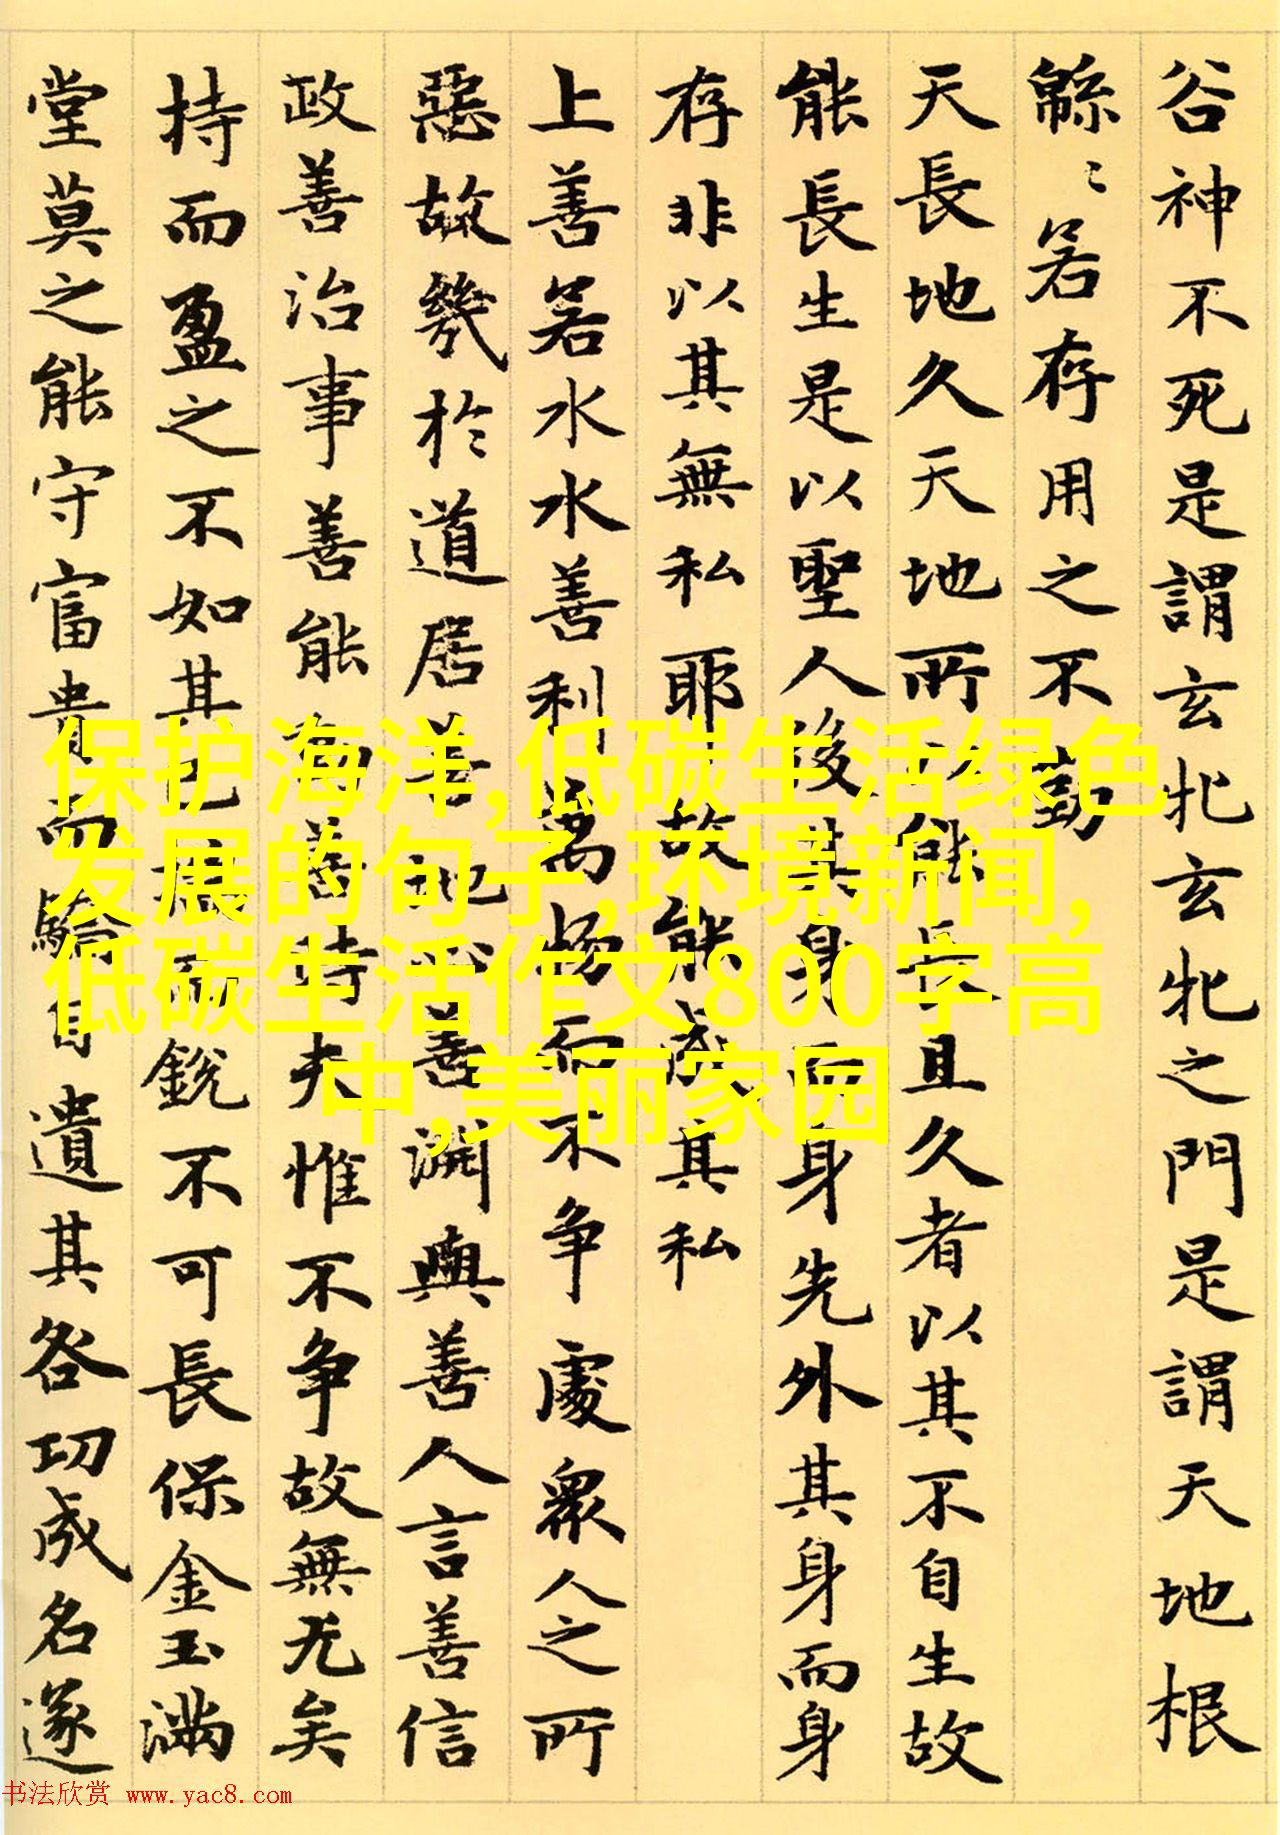 谷神不死是謂玄牝玄牝之門是謂天地根
緜〻若存用之不勤
天長地久天地所以能長且久者以其不自生故
能長生是以聖人後其身而身先外其身而身
存非以其無私耶故能成其私
上善若水水善利萬物而不争處衆人之所
惡故幾於道居善地心善淵與善人言善信
政善治事善能動善時夫惟不争故無尤矣
持而盈之不如其已揣而銳不可長保金玉滿
堂莫之能守富貴而驕自遺其咎功成名遂
保护海洋,低碳生活绿色
发展的句子,环境新闻,
低碳生活作文800字高
中,美丽家园
书法欣赏 www.yac8.com